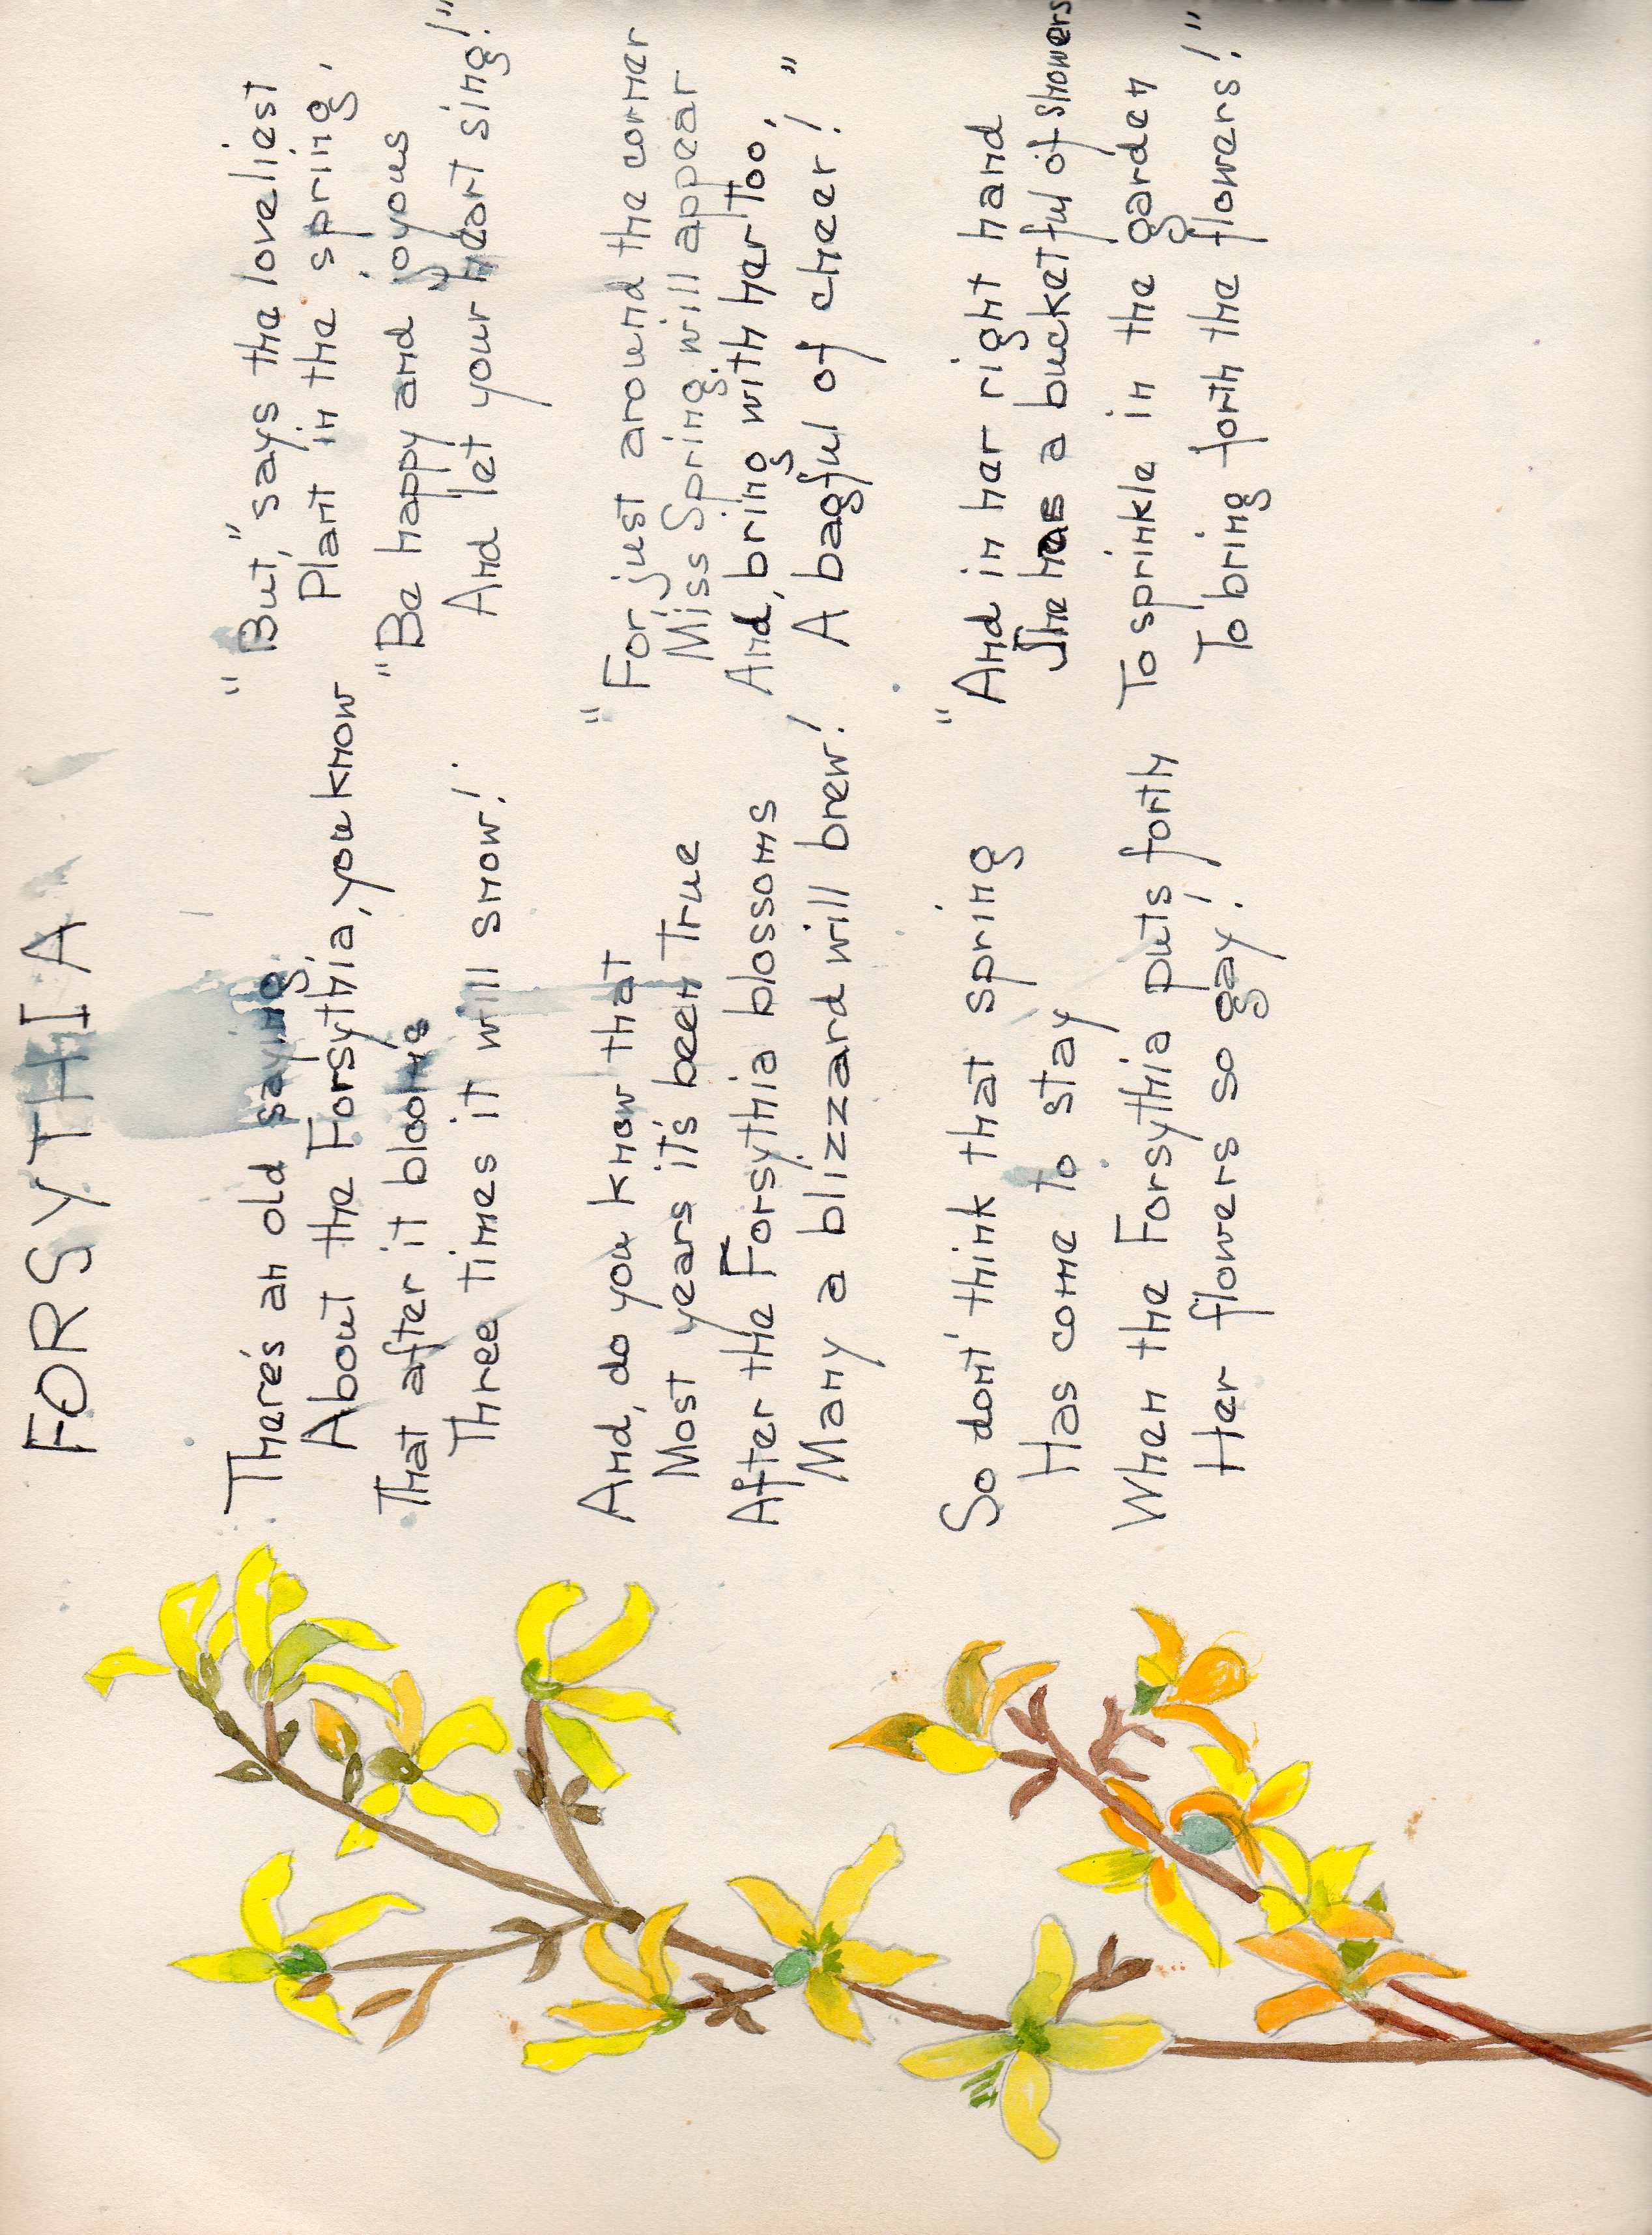 FORSYTHIA
There's an old saying
About the Forsythia, you know
That after it blooms
Three times it will snow!
And, do you know that
Most years it's been true
After the Forsythia blossoms
Many a blizzard will brew!
So don't think that spring
Has come to stay
When the Forsythia puts forth
Her flowers so gay!
"But," says the loveliest
Plant in the spring,
"Be happy and joyous
And let your heart sing!"
"For just around the corner
Miss Spring will appear
And, bring with her too,
A bagful of cheer!"
"And in her right hand
She has a bucketful of showers
To sprinkle in the garden
To bring forth the flowers!"